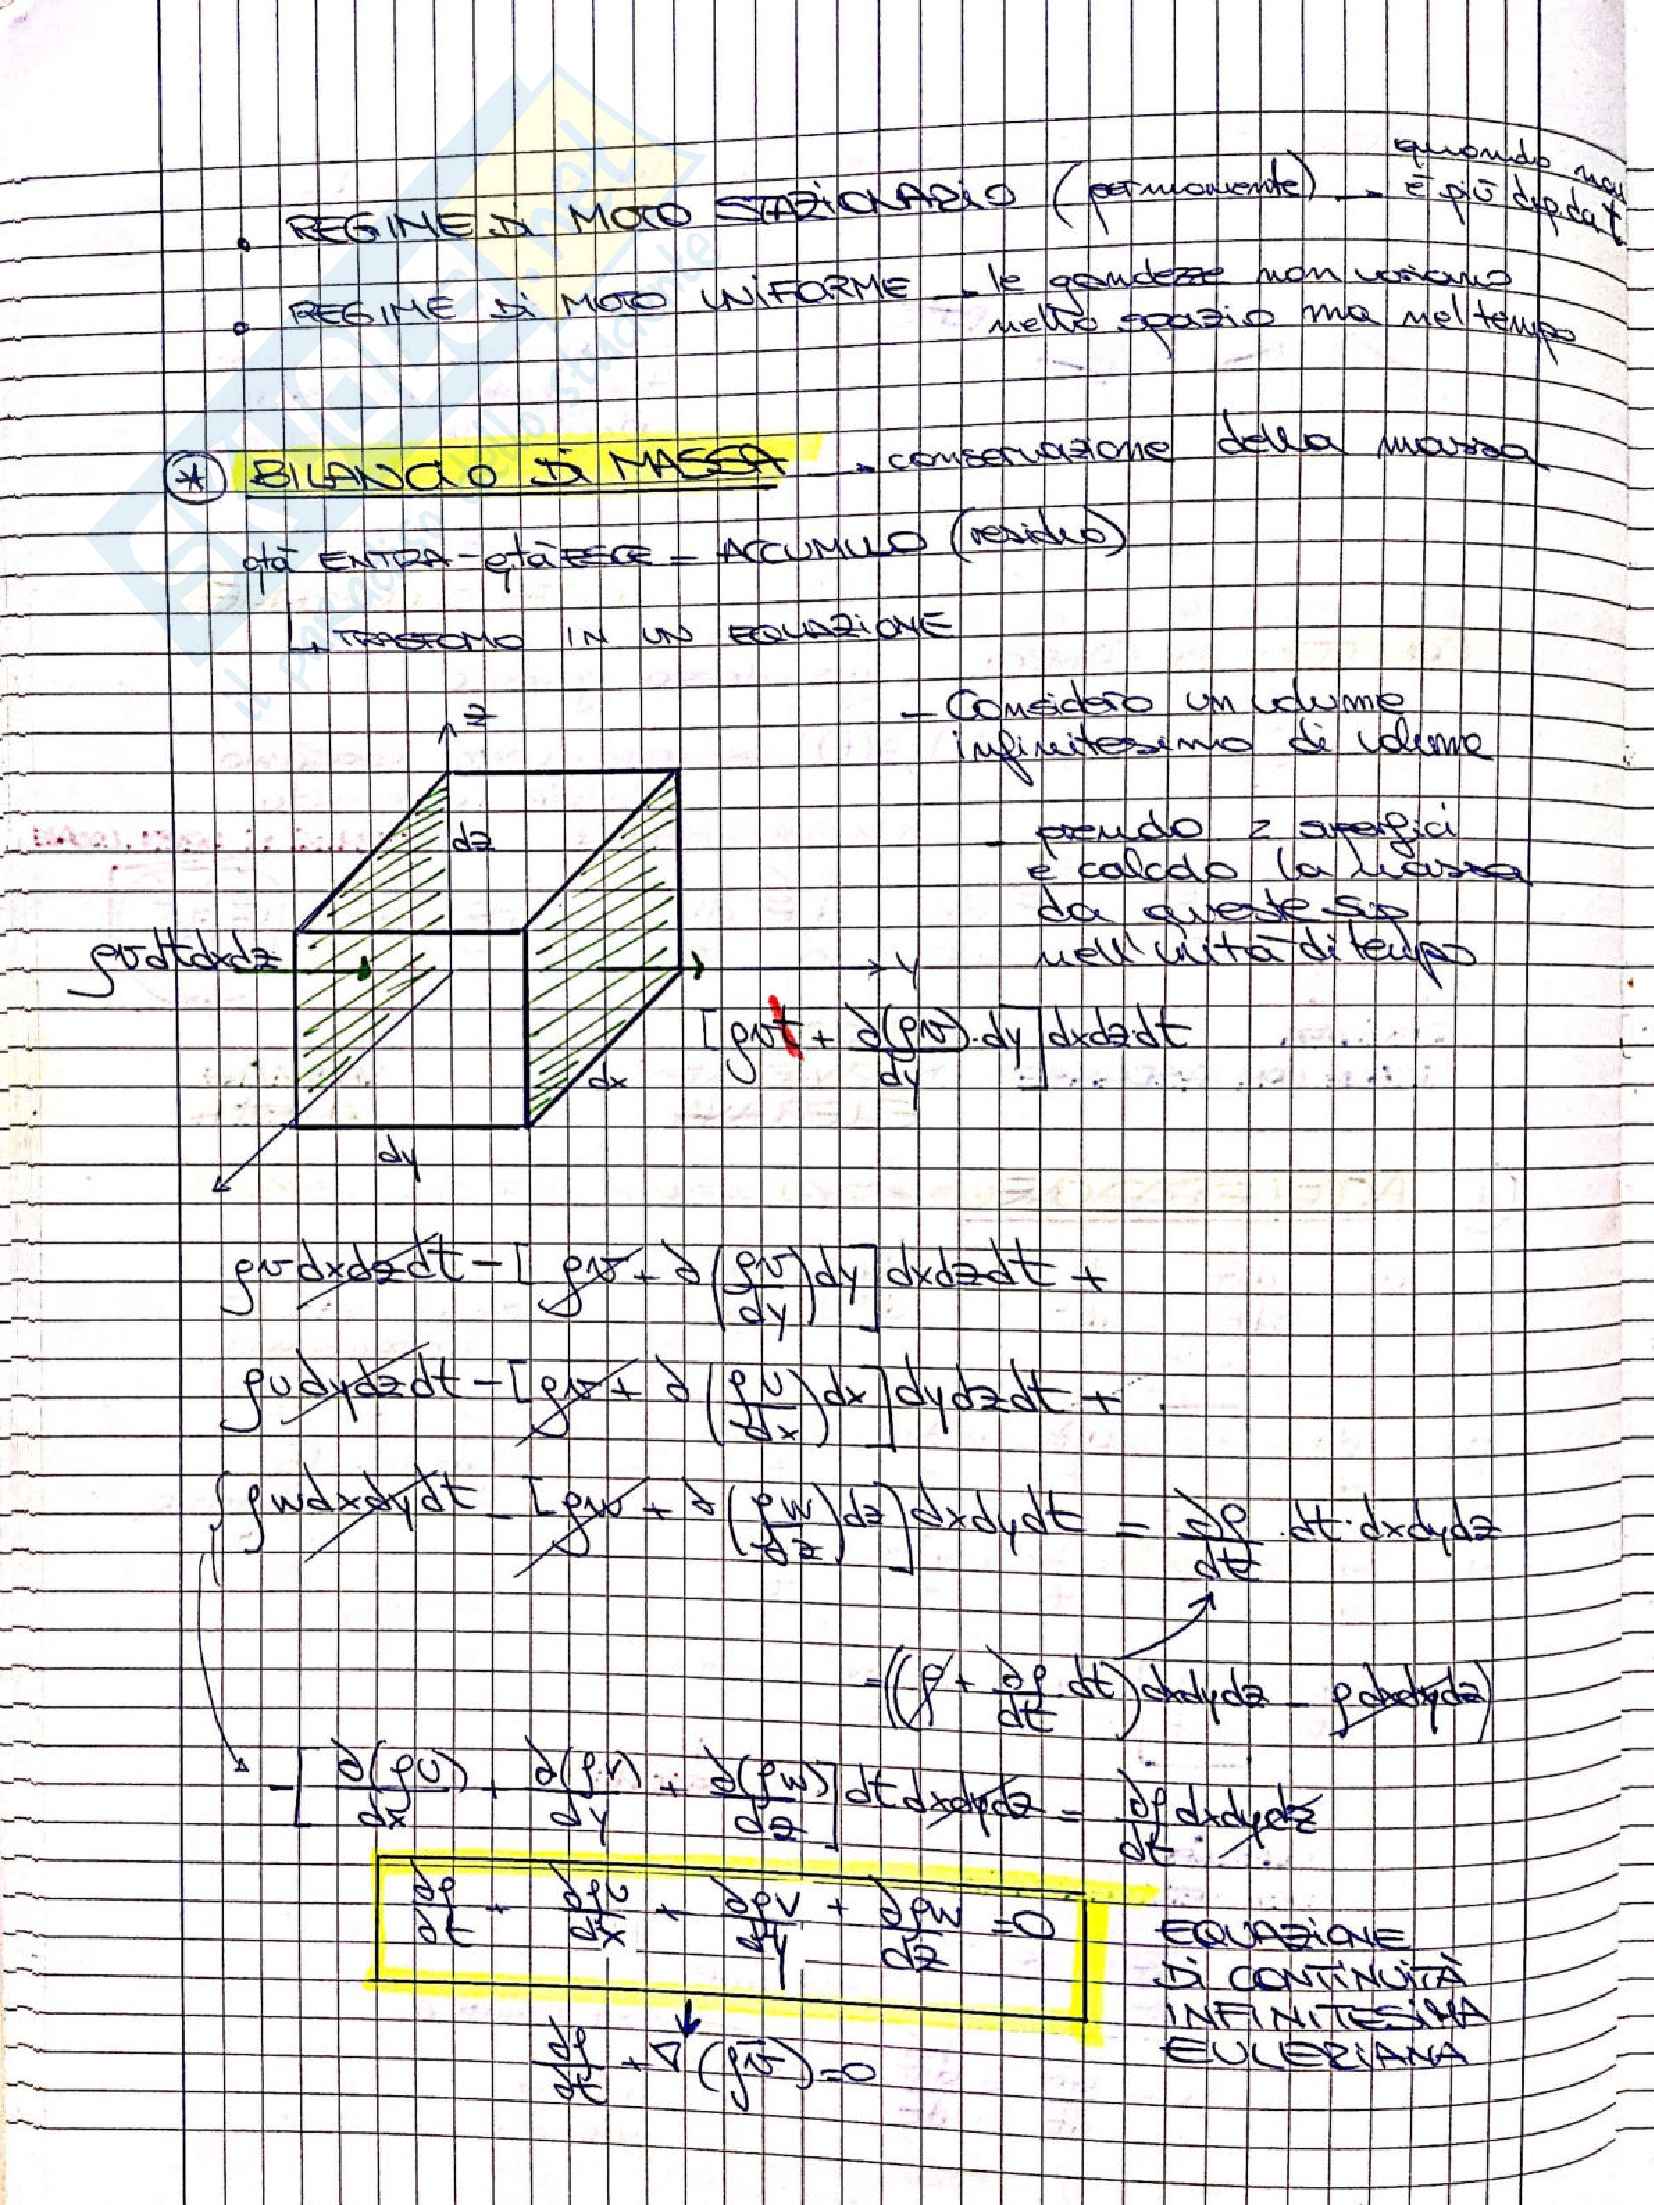 quando non
• REGIME DI MOTO STAZIONARIO (permanente) → è più dip. da t
• REGIME DI MOTO UNIFORME → le gandezze non variano
nello spazio ma nel tempo
* BILANCIO DI MASSA → conservazione della massa
qtà ENTRA - qtà ESCE = ACCUMULO (residuo)
↳ TRASFOMO IN UN EQUAZIONE
- Considero un volume
infinitesimo di volume
z
dz
- prendo 2 superfici
e calcolo la massa
da queste sup
nell'unità di tempo
ρvdtdxdz
y
[ρvt + ∂(ρv)/dy · dy] dxdzdt
dx
dy
ρvdxdzdt - [ρv + ∂(ρv/dy)dy] dxdzdt +
ρudydzdt - [ρv + ∂(ρu/dx)dx] dydzdt +
ρwdxdydt - [ρw + ∂(ρw/dz)dz] dxdydt = ∂ρ/dt · dt · dxdydz
=((ρ + ∂ρ/dt dt) dxdydz - ρdxdydz)
-[∂(ρu)/dx + ∂(ρv)/dy + ∂(ρw)/dz] dtdxdydz = ∂ρ/dt dxdydz
∂ρ/∂t + ∂ρu/dx + ∂ρv/dy + ∂ρw/dz = 0
EQUAZIONE
DI CONTINUITÀ
INFINITESIMA
EULERIANA
∂ρ/dt + ∇(ρv̄) = 0